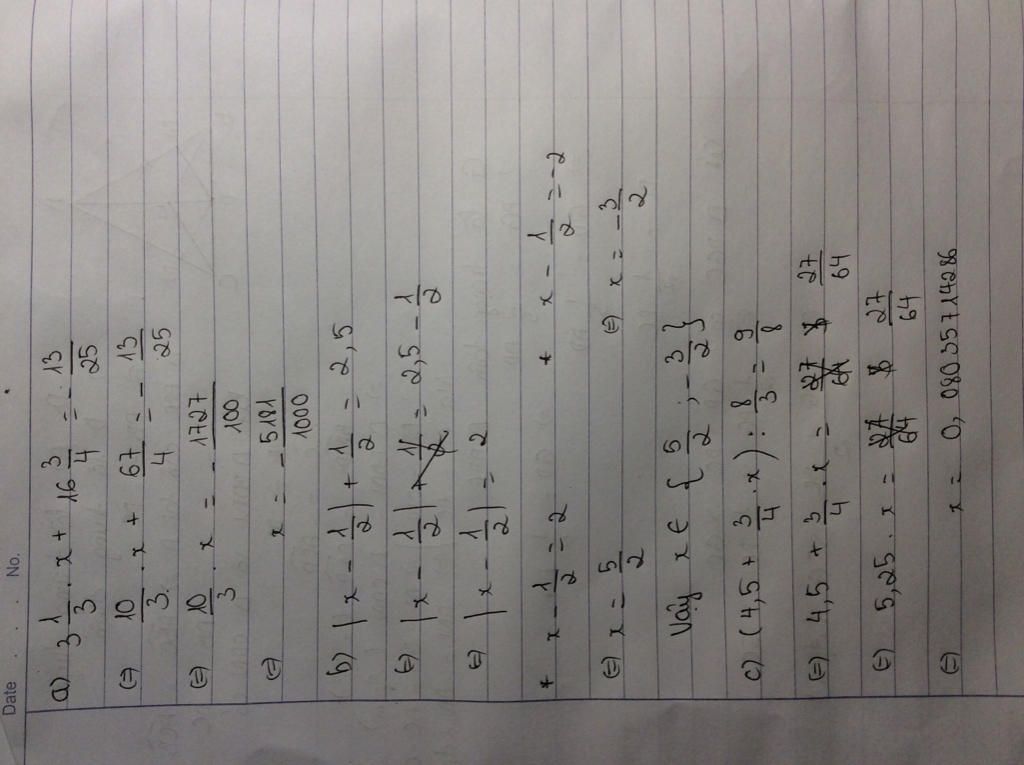 Date . . . No.
a) 3 1/3 . x + 16 3/4 = - 13/25
(=) 10/3 . x + 67/4 = - 13/25
(=) 10/3 . x = - 1727/100
(=) x = - 5181/1000
b) | x - 1/2 | + 1/2 = 2,5
(=) | x - 1/2 | = 2,5 - 1/2
(=) | x - 1/2 | = 2
* x - 1/2 = 2 * x - 1/2 = -2
(=) x = 5/2 (=) x = - 3/2
Vậy x ∈ { 5/2 ; - 3/2 }
c) ( 4,5 + 3/4 . x ) : 8/3 = 9/8
(=) 4,5 + 3/4 . x = 27/64
(=) 5,25 . x = 27/64
(=) x = 0,08035714286